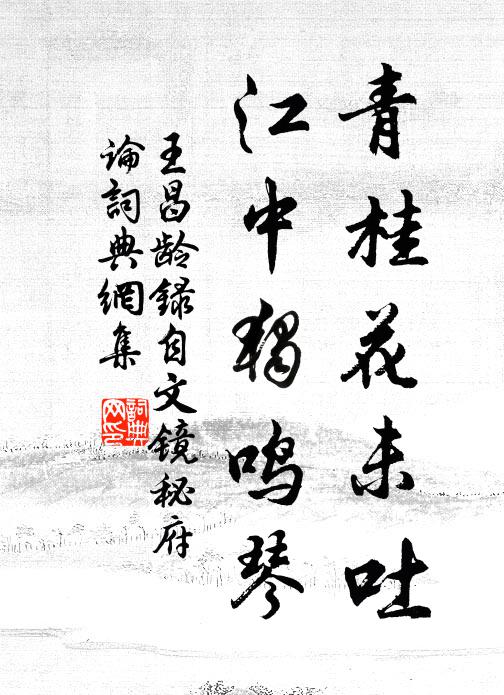 青桂花未吐
江中獨鳴琴
王昌龄録自文镜秘府
论詞典網集
詞典網印